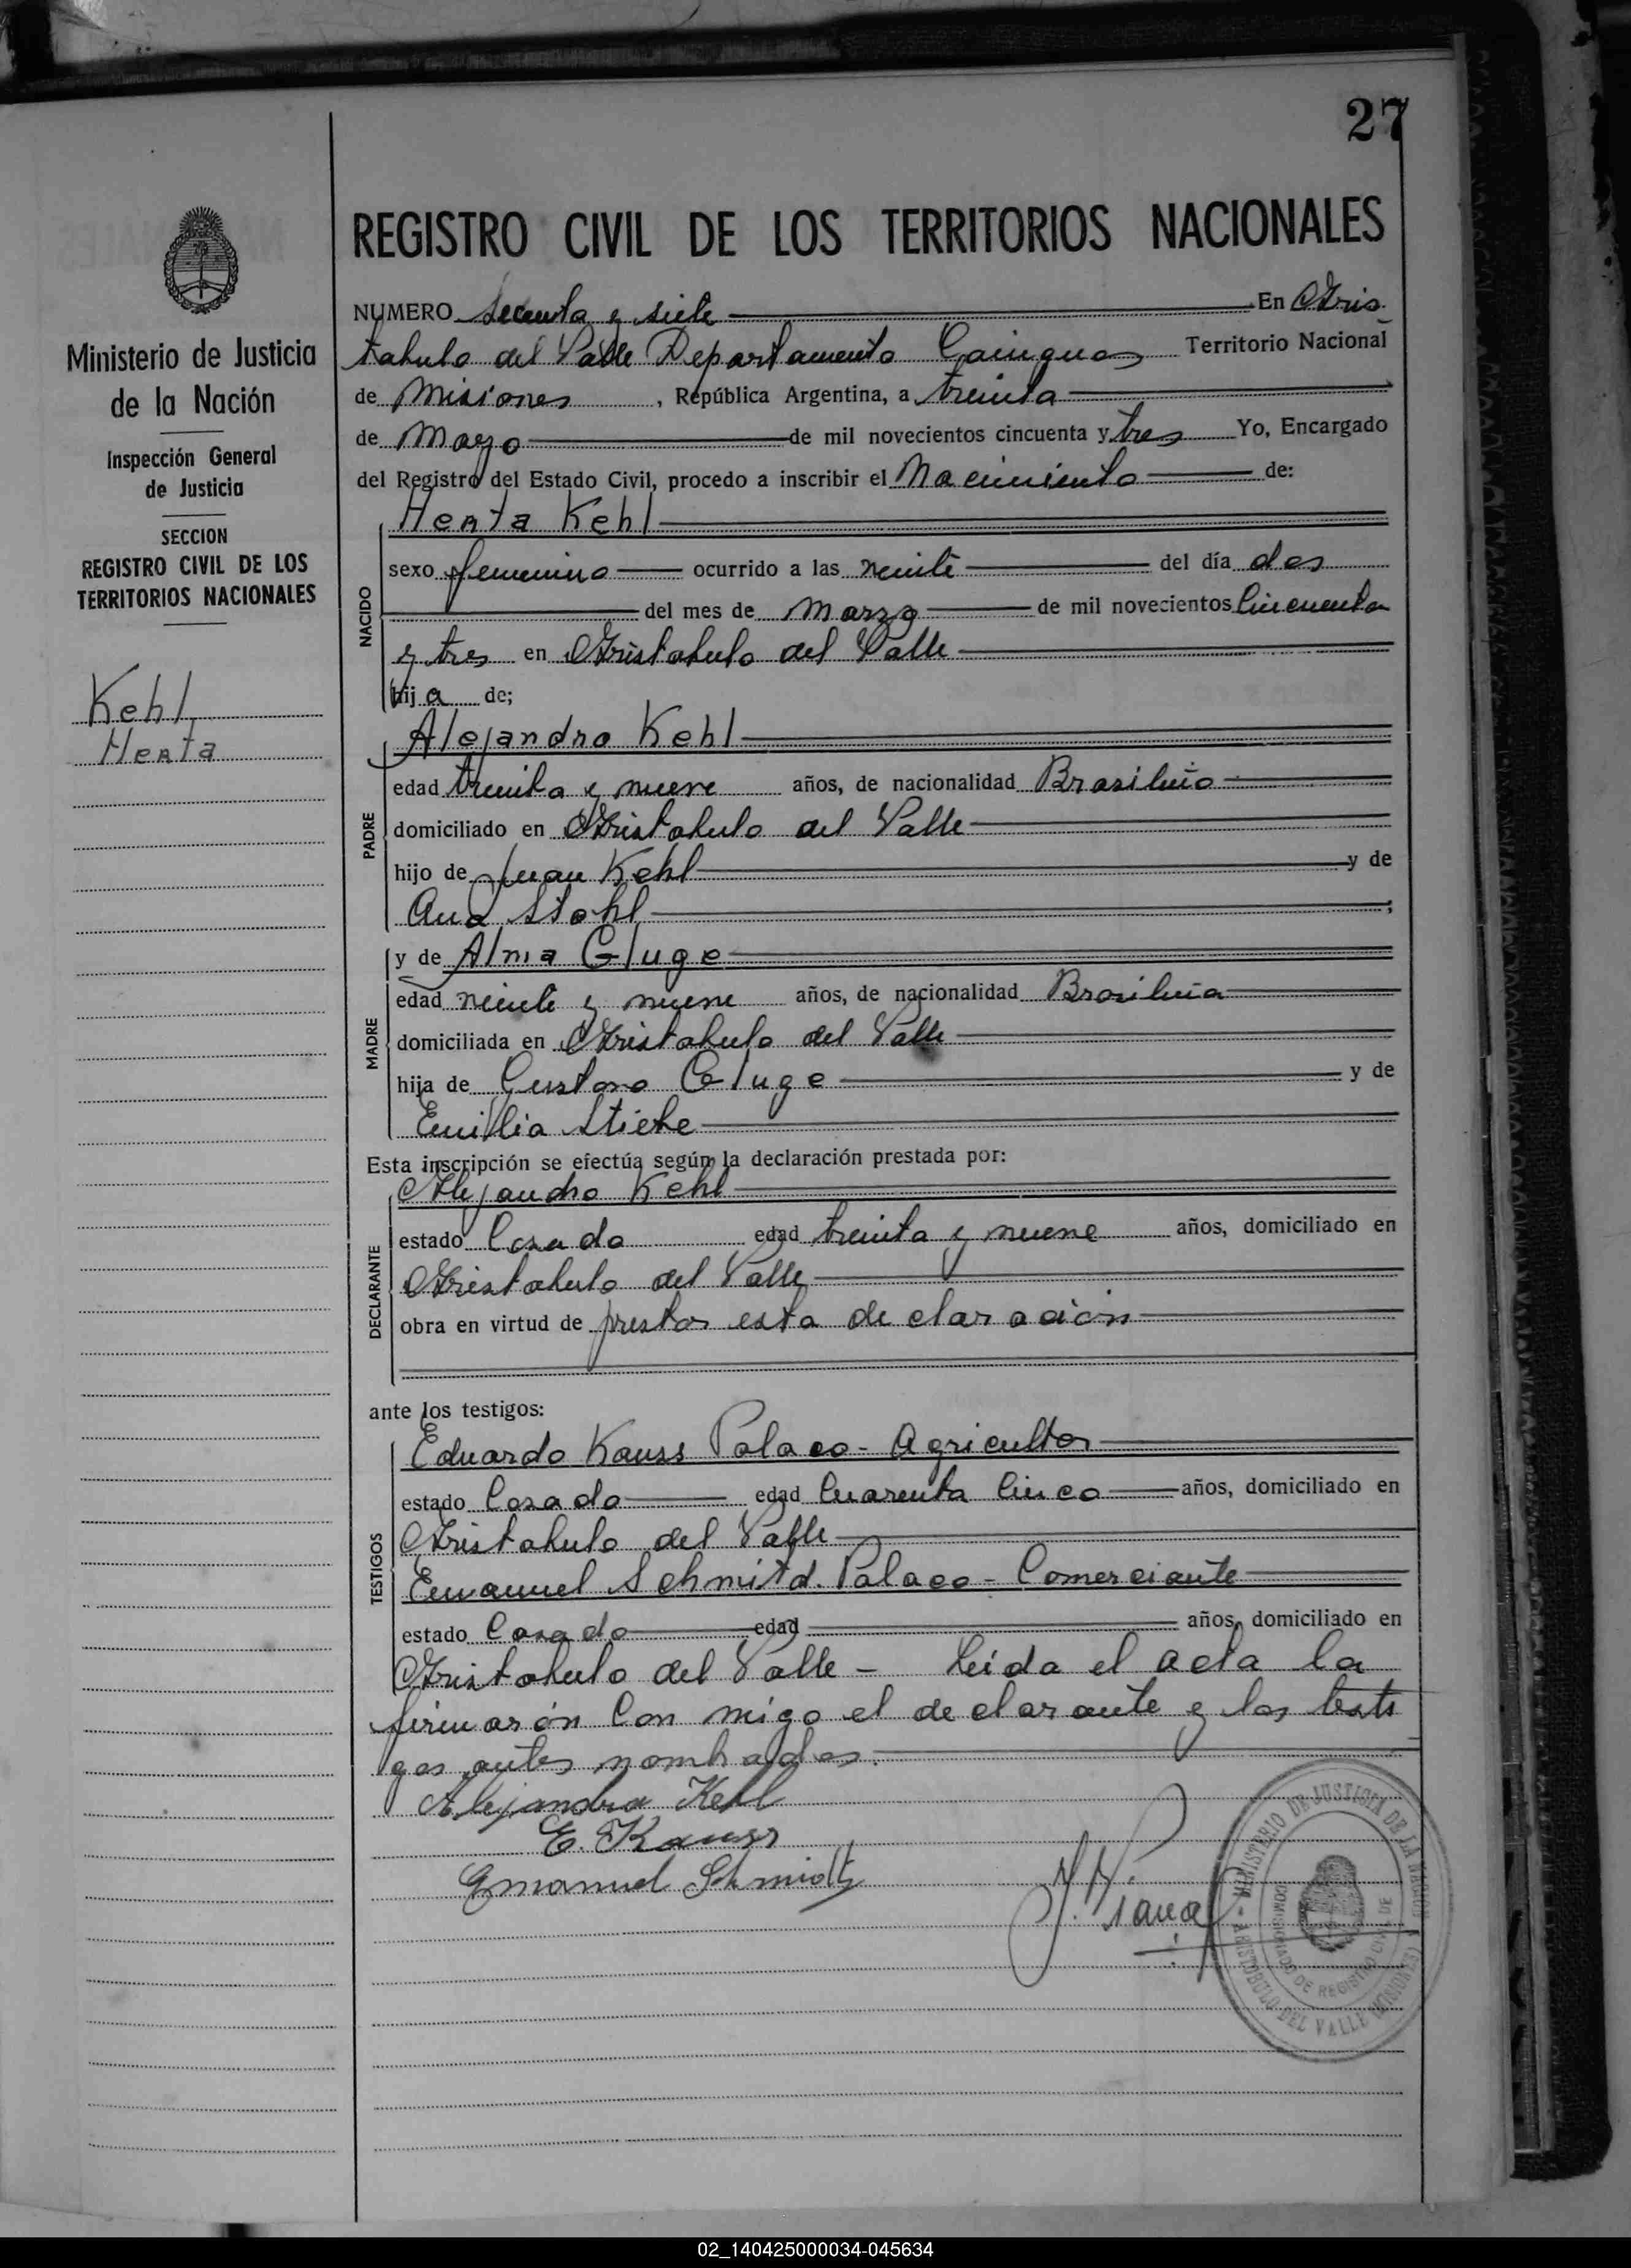 27
REGISTRO CIVIL DE LOS TERRITORIOS NACIONALES
Ministerio de Justicia
de la Nación
Inspección General
de Justicia
SECCION
REGISTRO CIVIL DE LOS
TERRITORIOS NACIONALES
Kehl
Herta
NUMERO y siete En Aris
tobulo del Valle Departamento Cainguas Territorio Nacional
de Misiones, República Argentina, a treinta
de Mayo de mil novecientos cincuenta y tres Yo, Encargado
del Registro del Estado Civil, procedo a inscribir el Nacimiento de:
Herta Kehl
NACIDO
sexo femenino ocurrido a las veinte del día dos
del mes de Marzo de mil novecientos Cincuenta
y tres en Aristobulo del Valle
hija de;
Alejandro Kehl
PADRE
edad treinta y nueve años, de nacionalidad Brasileño
domiciliado en Aristobulo del Valle
hijo de Juan Kehl y de
Ana Stohl;
y de Alma Gluge
MADRE
edad veinte y nueve años, de nacionalidad Brasileña
domiciliada en Aristobulo del Valle
hija de Gustavo Gluge y de
Emilia Stieke
Esta inscripción se efectúa según la declaración prestada por:
Alejandro Kehl
DECLARANTE
estado Casado edad treinta y nueve años, domiciliado en
Aristobulo del Valle
obra en virtud de prestar esta declaración
ante los testigos:
TESTIGOS
Eduardo Kauss Polaco - Agricultor
estado Casado edad Cuarenta Cinco años, domiciliado en
Aristobulo del Valle
Emanuel Schmitd. Polaco - Comerciante
estado Casado edad años, domiciliado en
Aristobulo del Valle - Leida el acta la
firmarón Con migo el declarante y los testi
gos antes nombrados.
Alejandro Kehl
E. Kauss
Emanuel Schmidt
MINISTERIO DE JUSTICIA DE LA NACION
ARISTOBULO DEL VALLE (MISIONES)
DE REGISTRO CIVIL DE
02_140425000034-045634